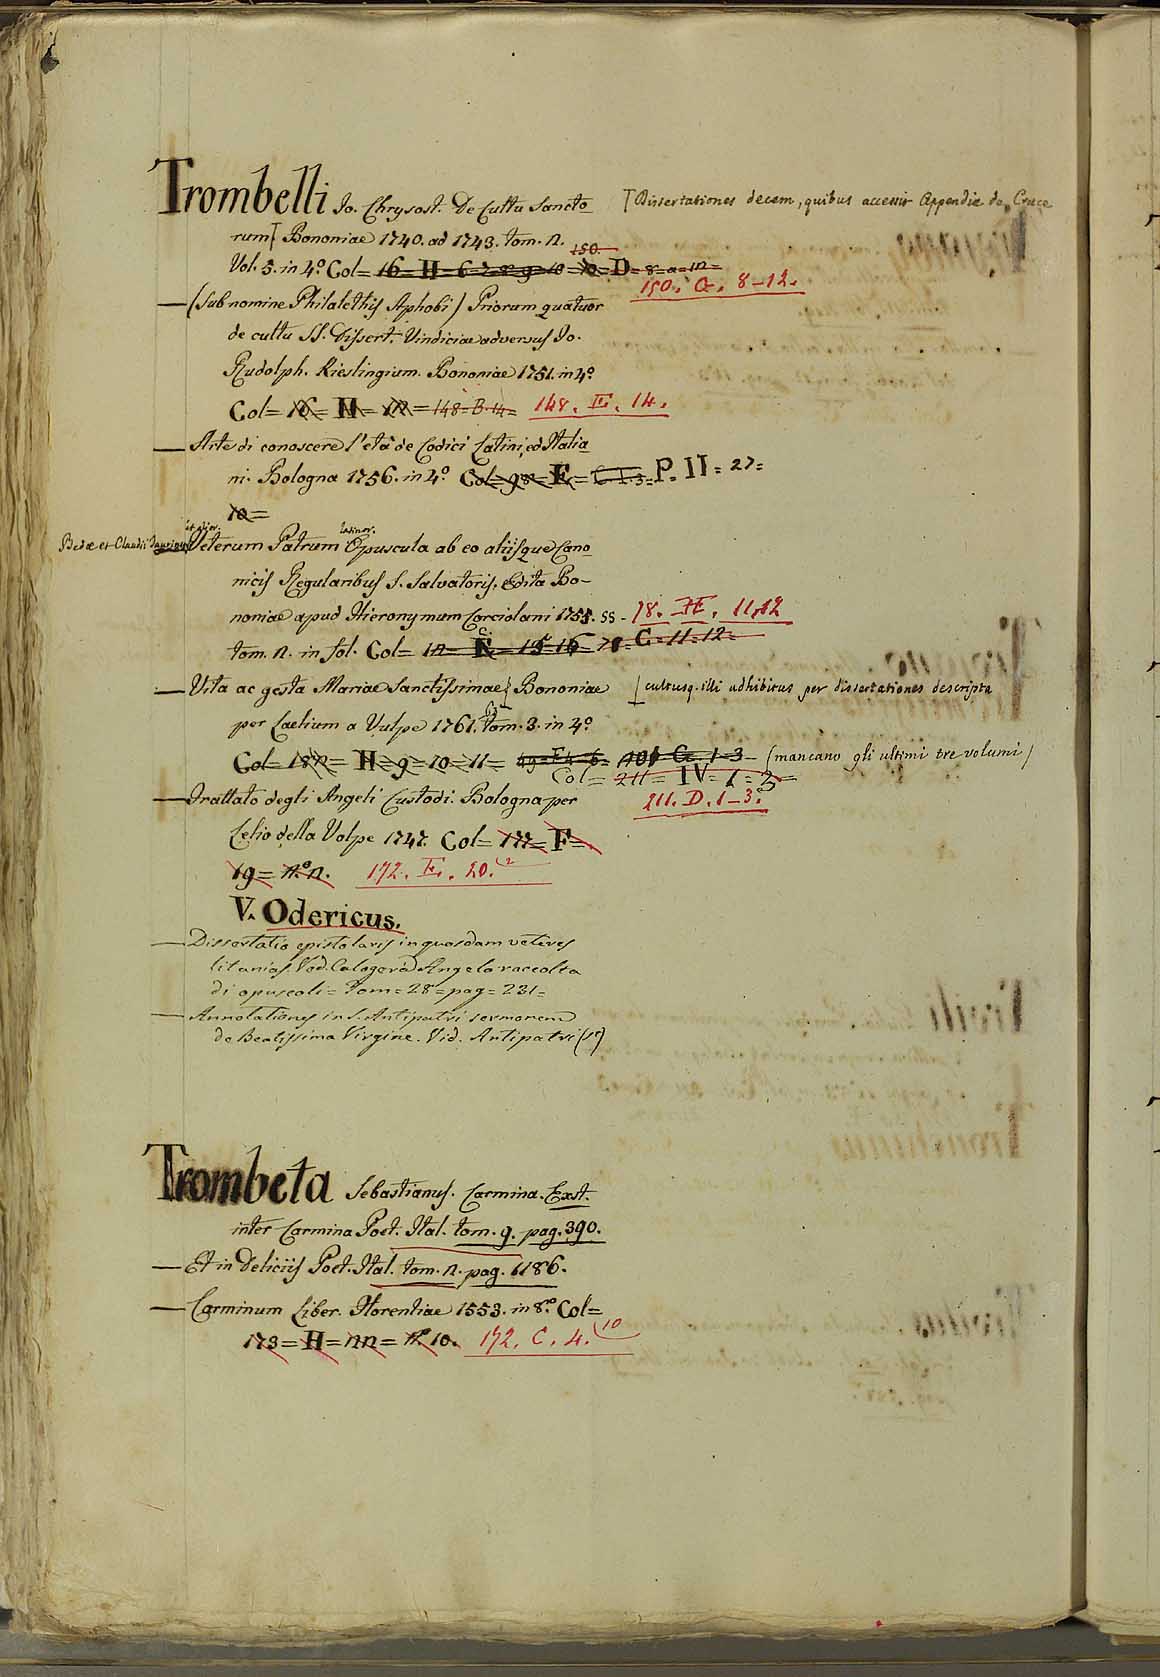 Trombelli Jo. Chrysost. De Cultu Sancto [Dissertationes decem, quibus accessit Appendix de Cruce
rum[ Bononiae 1740. ad 1743. tom. n. 150.
Vol. 5. in 4º Col= 16= H= 6-7-8-9-10 = D= 8= a= 12=
150. a. 8-12.
— (Sub nomine Philalethis Aphobi) Priorum quatuor
de cultu SS. Dissert. Vindiciae adversus Jo.
Rudolph. Kieslingium. Bononiae 1751. in 4º
Col= 16= H= 12= 148= B. 14= 148. E. 14.
— Arte di conoscere l'età de Codici Latini, ed Italia
ni. Bologna 1756. in 4º Col= 98= F= P. II= 27=
10=
Bedae et Claudii Taurinen. et alior. latinor.
— Veterum Patrum Opuscula ab eo aliisque Cano
nicis Regularibus S. Salvatoris, edita Bo-
noniae apud Hieronymum Corciolani 1755. ss - 78. 11.12
tom. n. in fol. Col= 12= E= 15-16= C= 11-12=
— Vita ac gesta Mariae Sanctissimae[ Bononiae [cultusq. illi adhibitus per dissertationes descripta
per Laelium a Vulpe 1761. 63 tom. 3. in 4º
Col= 182= H= 9= 10= 11= 1-3- (mancano gli ultimi tre volumi)
Col= 211= IV= 1= 3=
— Trattato degli Angeli Custodi. Bologna per 211. D. 1-3.
Lelio della Volpe 1747. Col= 177= F=
19= nº n. 172. E. 20. 2
V. Odericus.
— Dissertatio epistolaris in quasdam veteres
litanias. Vid. Calogerà Angelo raccolta
di opuscoli= Tom= 28= pag= 231=
— Annotationes in S. Antipatri sermonem
de Beatissima Virgine. Vid. Antipatri (S.)
Trombeta Sebastianus. Carmina. Exst.
inter Carmina Poet. Ital. tom. 9. pag. 390.
— Et in Deliciis Poet. Ital. tom. n. pag. 1186.
— Carminum Liber. Florentiae 1553. in 8º. Col=
173= H= nn= nº 10. 172. C. 4. 10